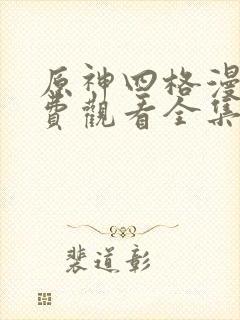 原神四格漫
費觀看全集
裴道彰